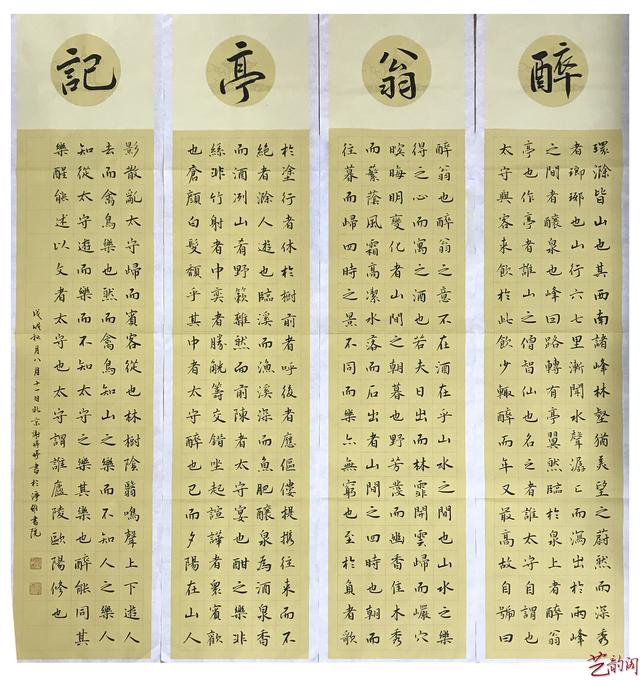 醉
環滁皆山也其西南諸峰林壑猶美望之蔚然而深秀
者瑯琊也山行六七里漸聞水聲潺〻而瀉出於兩峰
之間者釀泉也峰回路轉有亭翼然臨於泉上者醉翁
亭也作亭者誰山之僧智仙也名之者誰太守自謂也
太守與客來飲於此飲少輒醉而年又最高故自號曰
翁
醉翁也醉翁之意不在酒在乎山水之間也山水之樂
得之心而寓之酒也若夫日出而林霏開雲歸而巖穴
暝晦明變化者山間之朝暮也野芳發而幽香佳木秀
而繁蔭風霜高潔水落而石出者山間之四時也朝而
往暮而歸四時之景不同而樂亦無窮也至於負者歌
亭
於塗行者休於樹前者呼後者應傴僂提攜往來而不
絕者滁人遊也臨溪而漁溪深而魚肥釀泉為酒泉香
而酒冽山肴野蔌雜然而前陳者太守宴也酣之樂非
絲非竹射者中奕者勝觥籌交錯坐起諠譁者眾賓歡
也蒼顏白髮頹乎其中者太守醉也已而夕陽在山人
記
影散亂太守歸而賓客從也林樹陰翳鳴聲上下遊人
去而禽鳥樂也然而禽鳥知山之樂而不知人之樂人
知從太守遊而樂而不知太守之樂其樂也醉能同其
樂醒能述以文者太守也太守謂誰廬陵歐陽修也
戊戌秋月八月十一日於京謝婷婷書於淨雅書院
艺韵阁